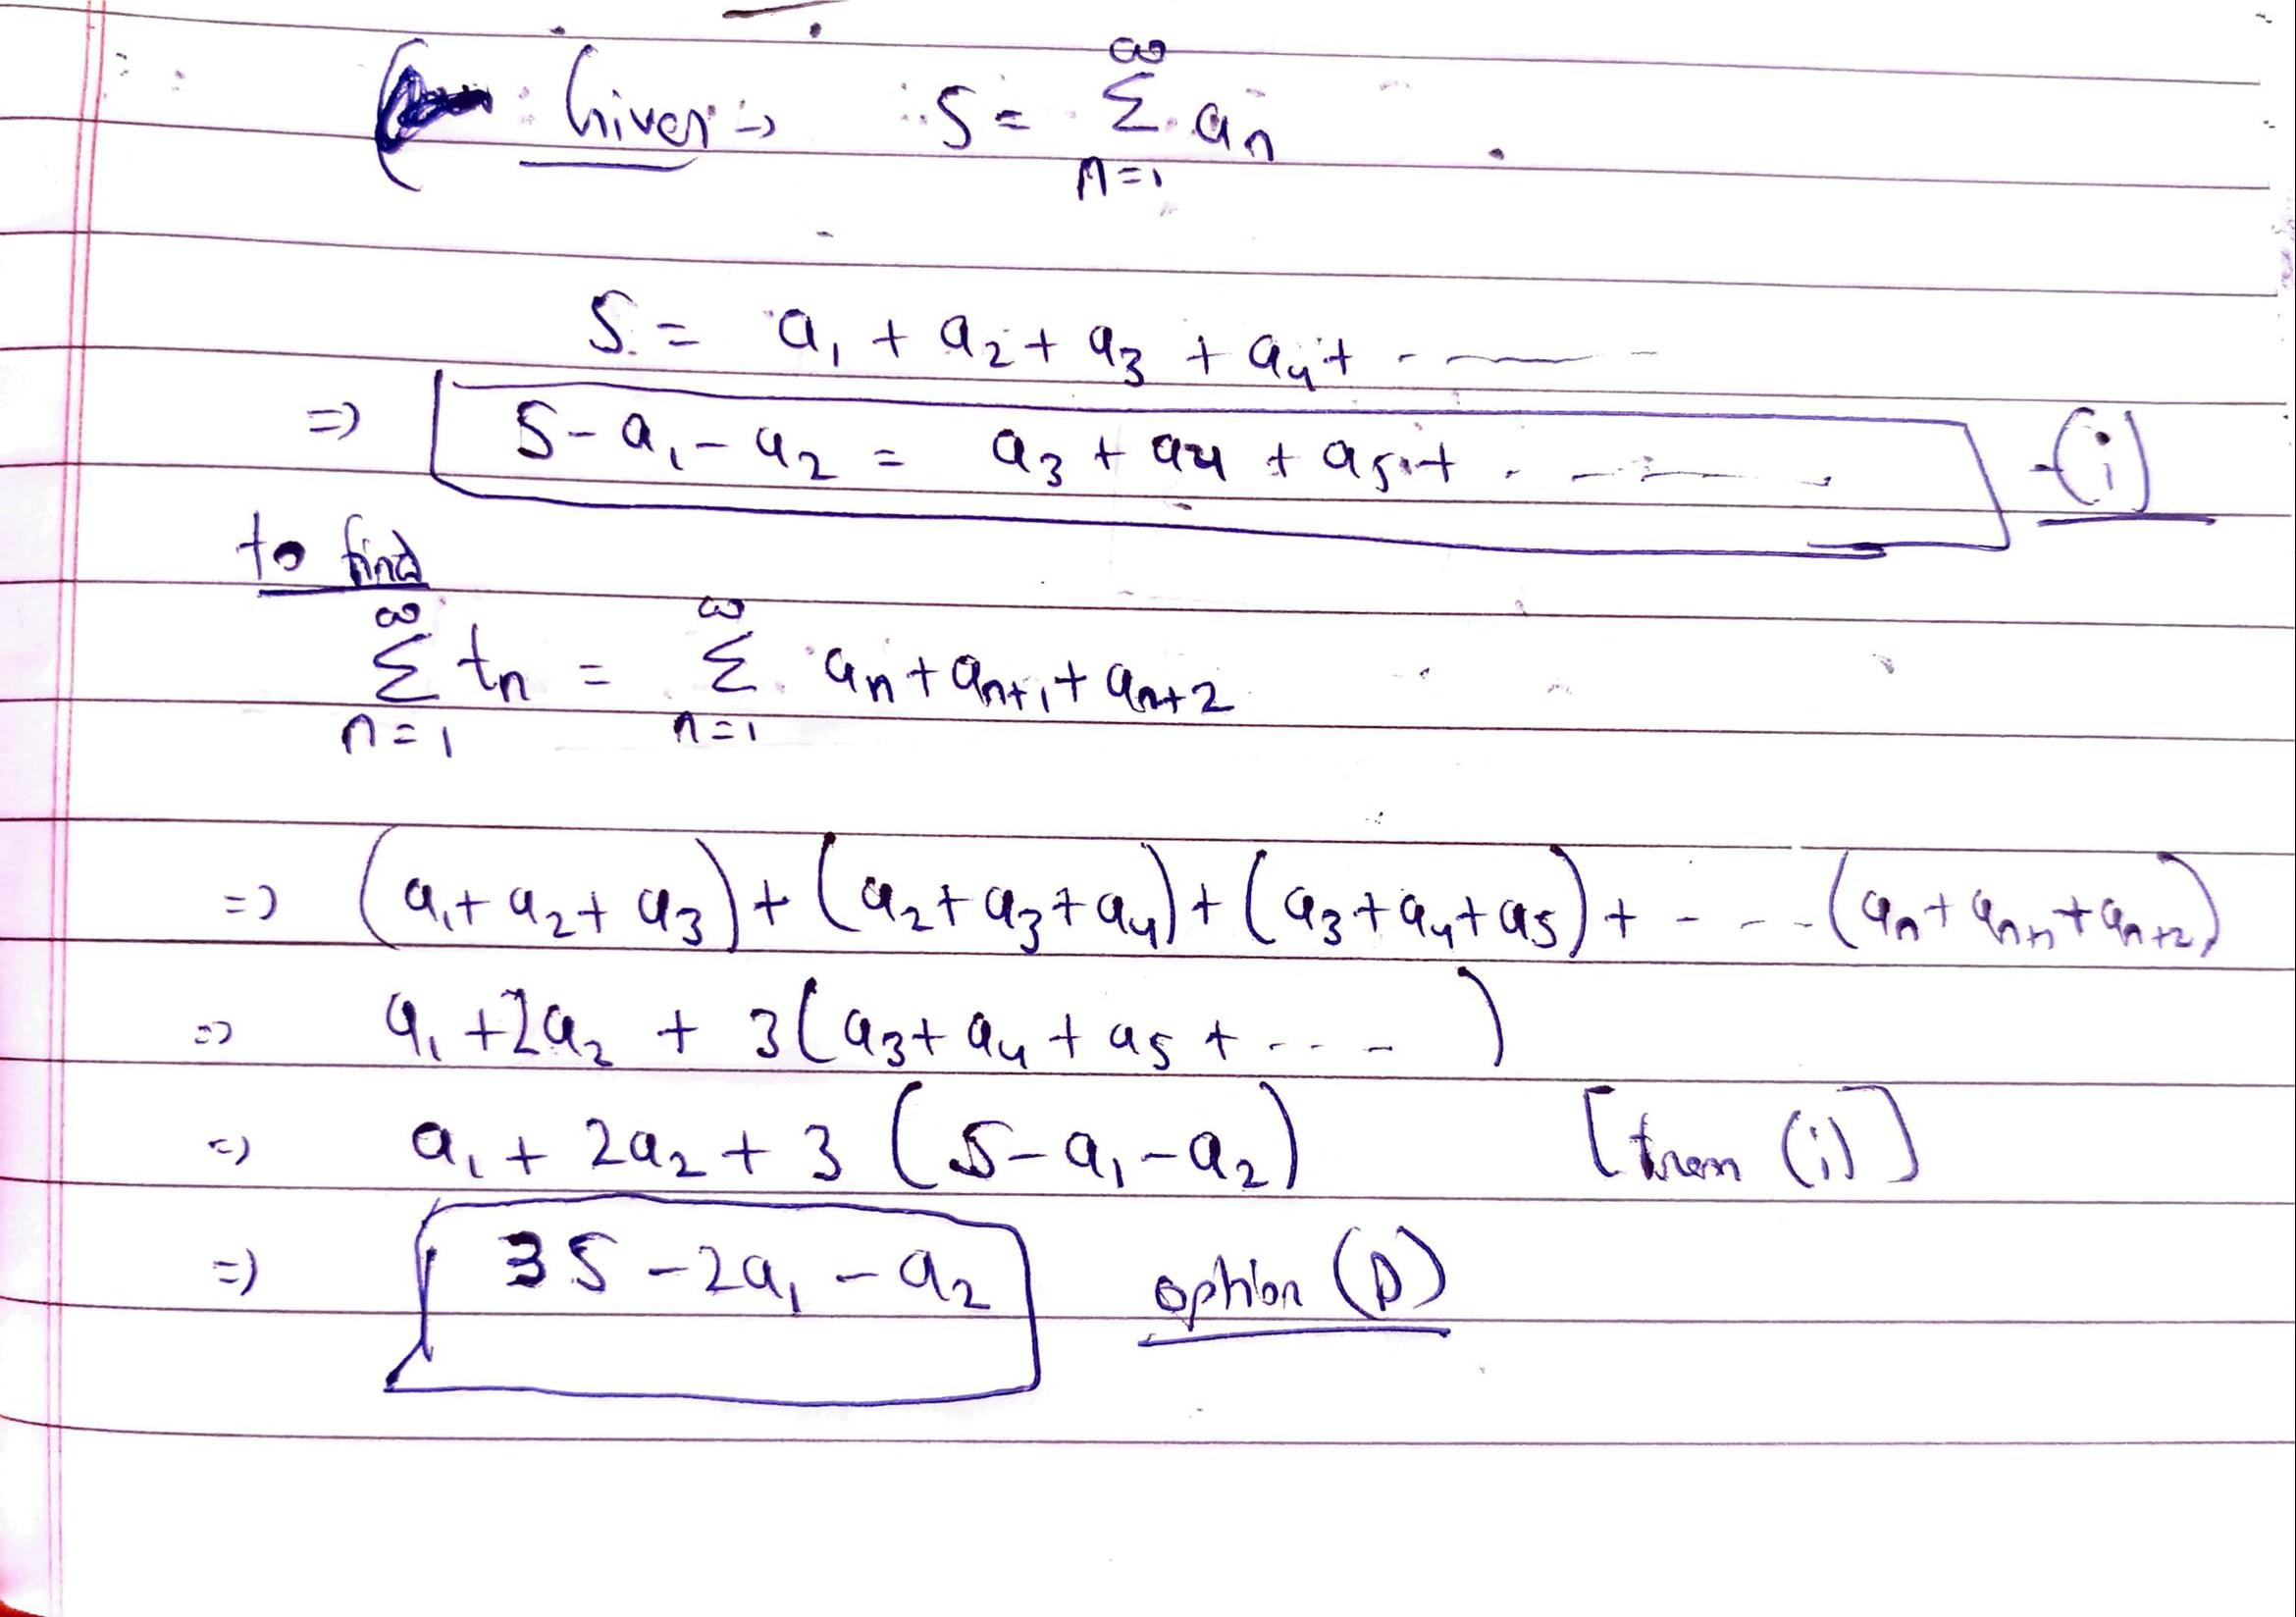 Given → S = ∞ Σ n=1 an
S = a₁ + a₂ + a₃ + a₄ + - —— -
⇒ S - a₁ - a₂ = a₃ + a₄ + a₅ + . - - —— . -(i)
to find
∞ Σ n=1 tn = ∞ Σ n=1 an + an+1 + an+2
⇒ (a₁ + a₂ + a₃) + (a₂ + a₃ + a₄) + (a₃ + a₄ + a₅) + - -- - (an + an+1 + an+2)
⇒ a₁ + 2a₂ + 3(a₃ + a₄ + a₅ + - - - )
⇒ a₁ + 2a₂ + 3 (S - a₁ - a₂) [from (i)]
⇒ 3S - 2a₁ - a₂ option (D)